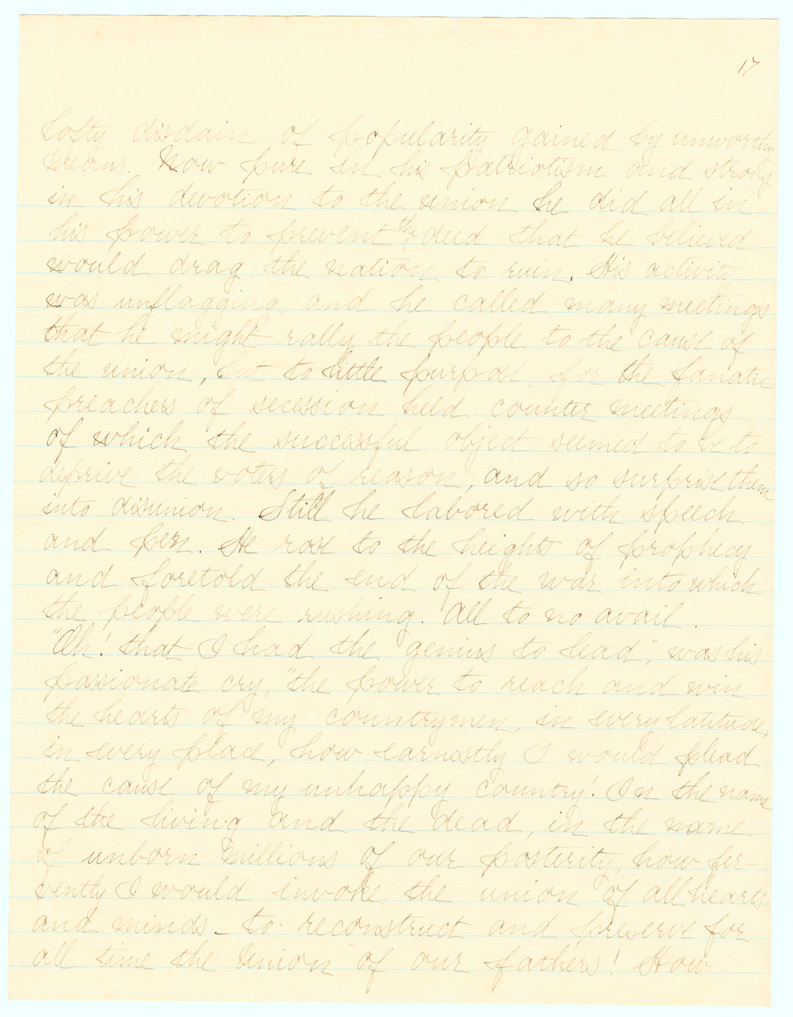 17
lofty disdain of popularity gained by unworthy
means. Now pure in his patriotism and strong
in his devotion to the union he did all in
his power to prevent the deed that he believed
would drag the nation to ruin. His activity
was unflagging, and he called many meetings
that he might rally the people to the cause of
the union, but to little purpose for the fanatic
preachers of secession held counter meetings
of which the successful object seemed to be to
deprive the voters of reason, and so surprise them
into disunion. Still he labored with speech
and pen. He rose to the heights of prophecy
and foretold the end of the war into which
the people were rushing. All to no avail.
"Ah! that I had the genius to lead", was his
passionate cry, "the power to reach and win
the hearts of my countrymen, in every latitude,
in every place, how earnestly I would plead
the cause of my unhappy country! In the name
of the living and the dead, in the name
of unborn millions of our posterity, how fer-
vently I would invoke the union of all hearts
and minds - to reconstruct and preserve for
all time the Union of our fathers! How